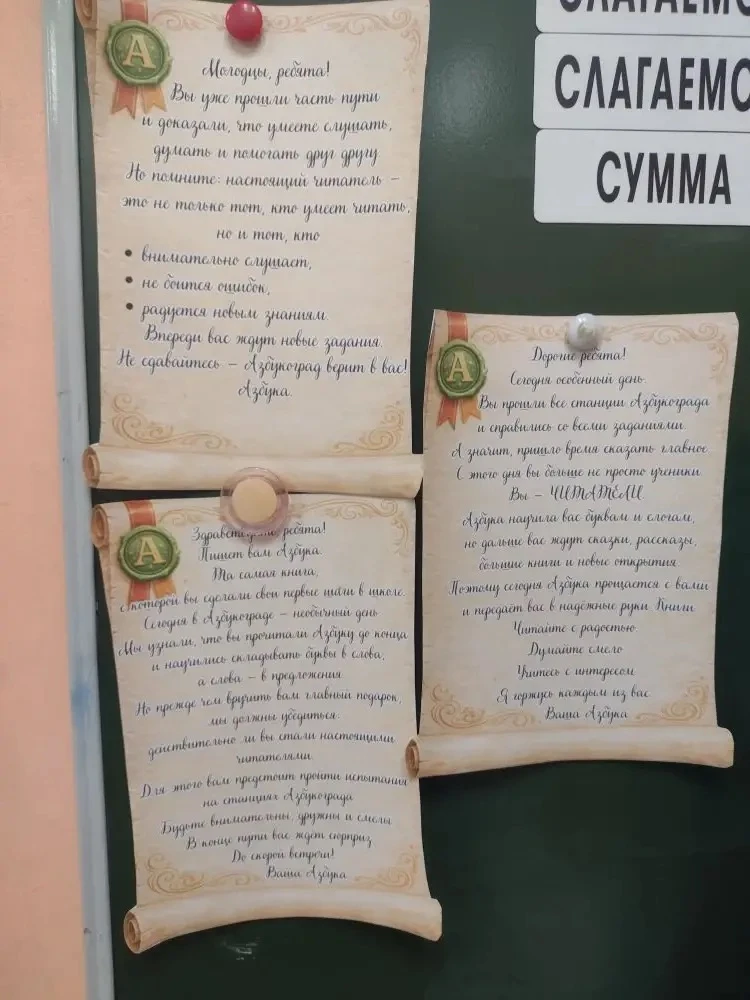 А
Молодцы, ребята!
Вы уже прошли часть пути
и доказали, что умеете слушать,
думать и помогать друг другу
Но помните: настоящий читатель –
это не только тот, кто умеет читать,
но и тот, кто
• внимательно слушает,
• не боится ошибок,
• радуется новым знаниям.
Впереди вас ждут новые задания.
Не сдавайтесь – Азбукоград верит в вас!
Азбука.
А
ребята!
Пишет вам Азбука.
Та самая книга,
с которой вы сделали свои первые шаги в школе.
Сегодня в Азбукограде – необычный день
Мы узнали, что вы прочитали Азбуку до конца
и научились складывать буквы в слова,
а слова – в предложения.
Но прежде чем вручить вам главный подарок,
мы должны убедиться:
действительно ли вы стали настоящими
читателями.
Для этого вам предстоит пройти испытания
на станциях Азбукограда
Будьте внимательны, дружны и смелы
В конце пути вас ждёт сюрприз
До скорой встречи!
Ваша Азбука
А
Дорогие ребята!
Сегодня особенный день.
Вы прошли все станции Азбукограда
и справились со всеми заданиями.
А значит, пришло время сказать главное
С этого дня вы больше не просто ученики.
Вы – ЧИТАТЕЛИ.
Азбука научила вас буквам и слогам,
но дальше вас ждут сказки, рассказы,
большие книги и новые открытия
Поэтому сегодня Азбука прощается с вами
и передаёт вас в надёжные руки Книги
Читайте с радостью
Думайте смело
Учитесь с интересом
Я горжусь каждым из вас
Ваша Азбука
СЛАГАЕМО
СЛАГАЕМО
СУММА